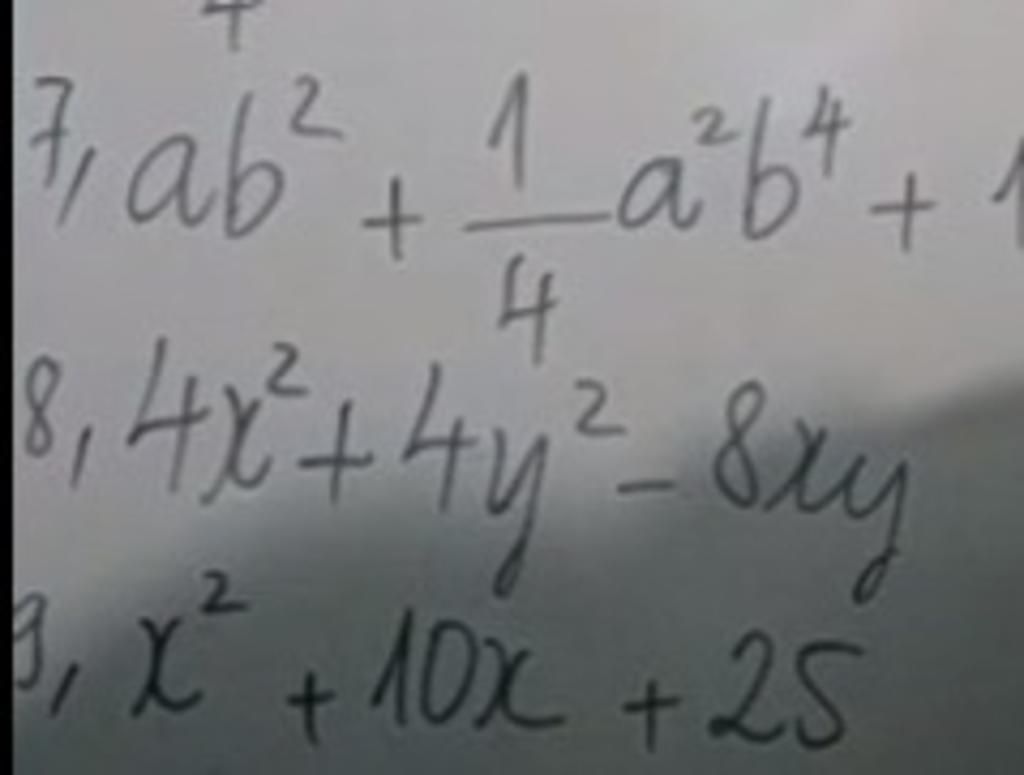 7, ab² + 1/4 a²b⁴ + 1
8, 4x² + 4y² - 8xy
9, x² + 10x + 25